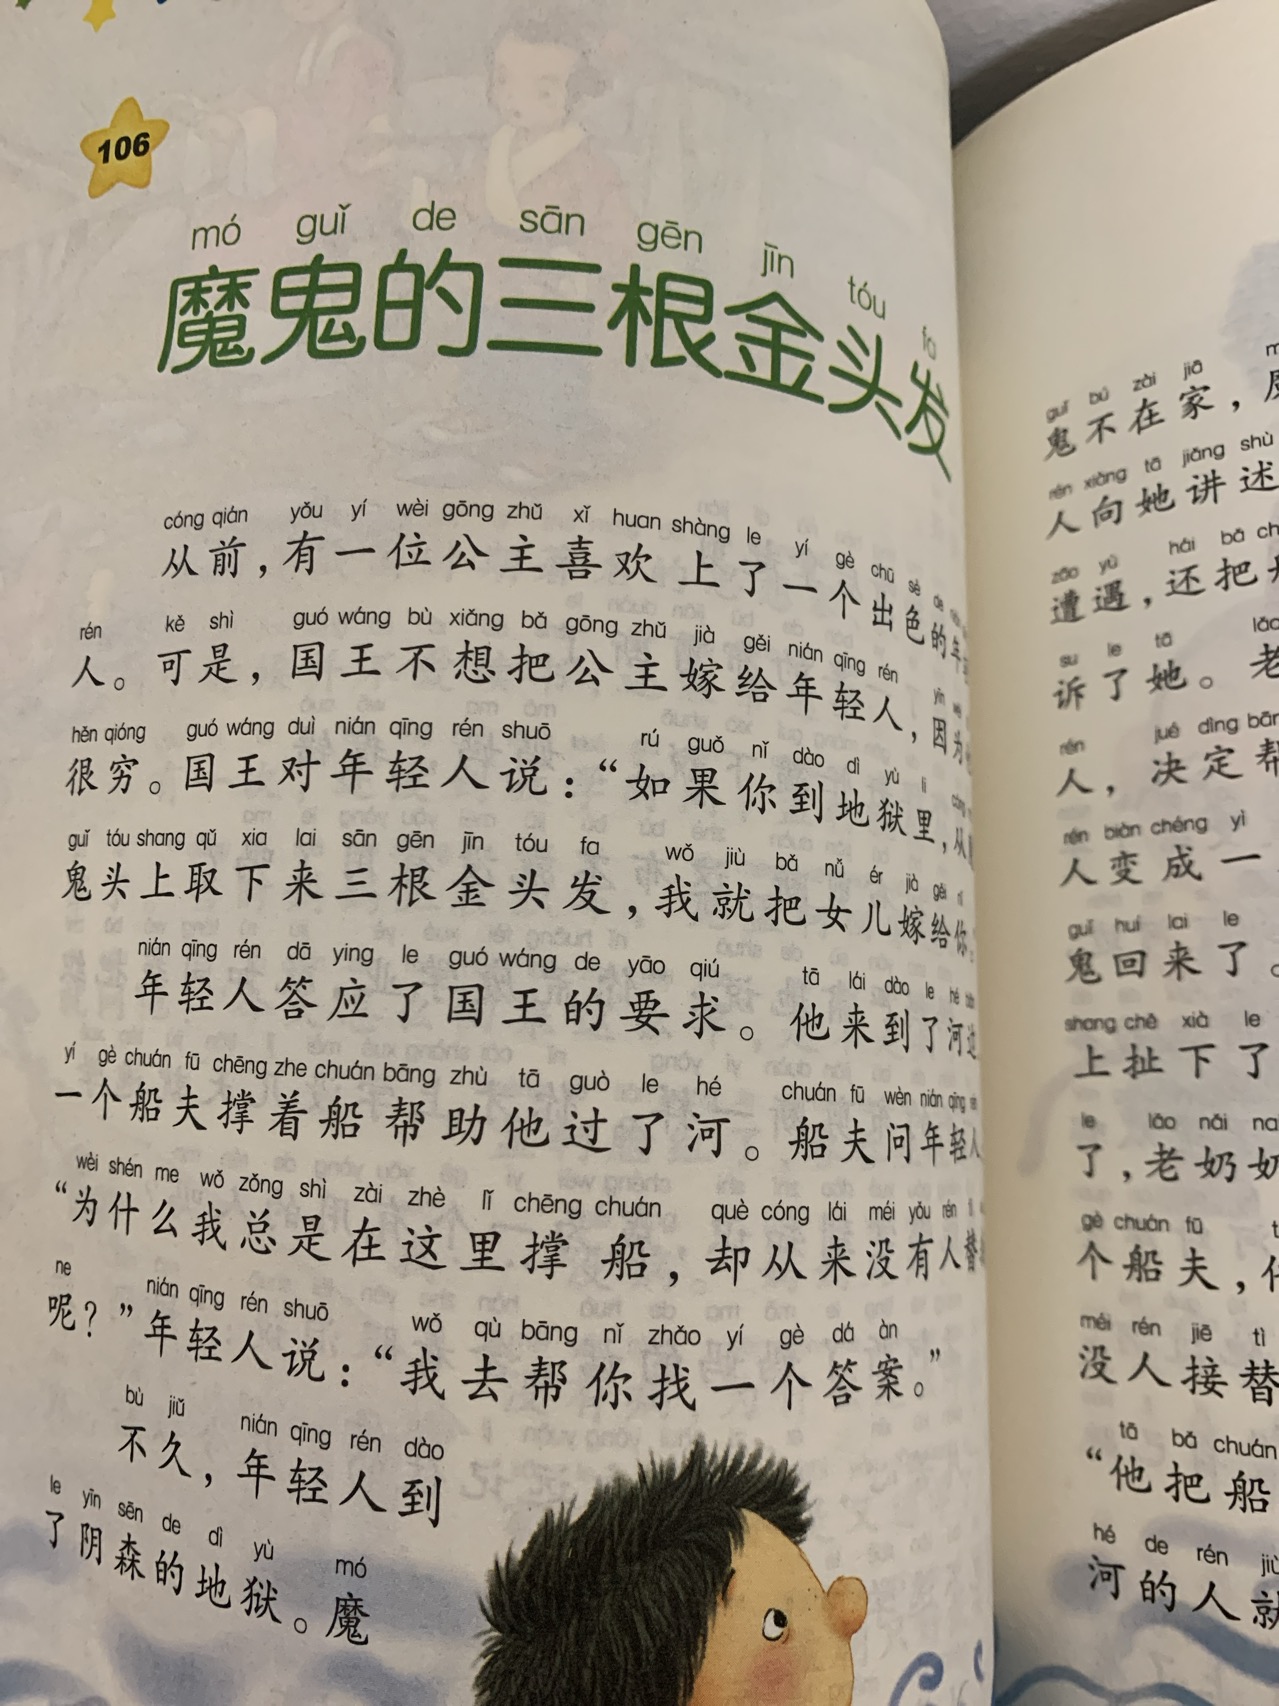 106
mó guǐ de sān gēn jīn tóu fa
魔鬼的三根金头发
cóng qián yǒu yí wèi gōng zhǔ xǐ huan shàng le yí gè chū sè de
从前，有一位公主喜欢上了一个出色的年
rén kě shì guó wáng bù xiǎng bǎ gōng zhǔ jià gěi nián qīng rén yīn
人。可是，国王不想把公主嫁给年轻人，因为
hěn qióng guó wáng duì nián qīng rén shuō rú guǒ nǐ dào dì yù li cóng
很穷。国王对年轻人说：“如果你到地狱里，从
guǐ tóu shang qǔ xia lai sān gēn jīn tóu fa wǒ jiù bǎ nǚ ér jià gěi nǐ
鬼头上取下来三根金头发，我就把女儿嫁给你
nián qīng rén dā ying le guó wáng de yāo qiú tā lái dào le hé
年轻人答应了国王的要求。他来到了河边
yí gè chuán fū chēng zhe chuán bāng zhù tā guò le hé chuán fū wèn nián qīng
一个船夫撑着船帮助他过了河。船夫问年轻人
wèi shén me wǒ zǒng shì zài zhè lǐ chēng chuán què cóng lái méi yǒu rén
“为什么我总是在这里撑船，却从来没有人替
ne nián qīng rén shuō wǒ qù bāng nǐ zhǎo yí gè dá àn
呢？”年轻人说：“我去帮你找一个答案。”
bù jiǔ nián qīng rén dào
不久，年轻人到
le yīn sēn de dì yù mó
了阴森的地狱。魔
guǐ bú zài jiā
鬼不在家，
rén xiàng tā jiǎng shù
人向她讲述
zāo yù hái bǎ
遭遇，还把
su le tā
诉了她。老
rén jué dìng bāng
人，决定帮
rén biàn chéng yì
人变成一
guǐ huí lai le
鬼回来了。
shang chě xià le
上扯下了
le lǎo nǎi
了，老奶奶
gè chuán fū
个船夫，
méi rén jiē tì
没人接替
tā bǎ chuán
“他把船
hé de rén jiù
河的人就